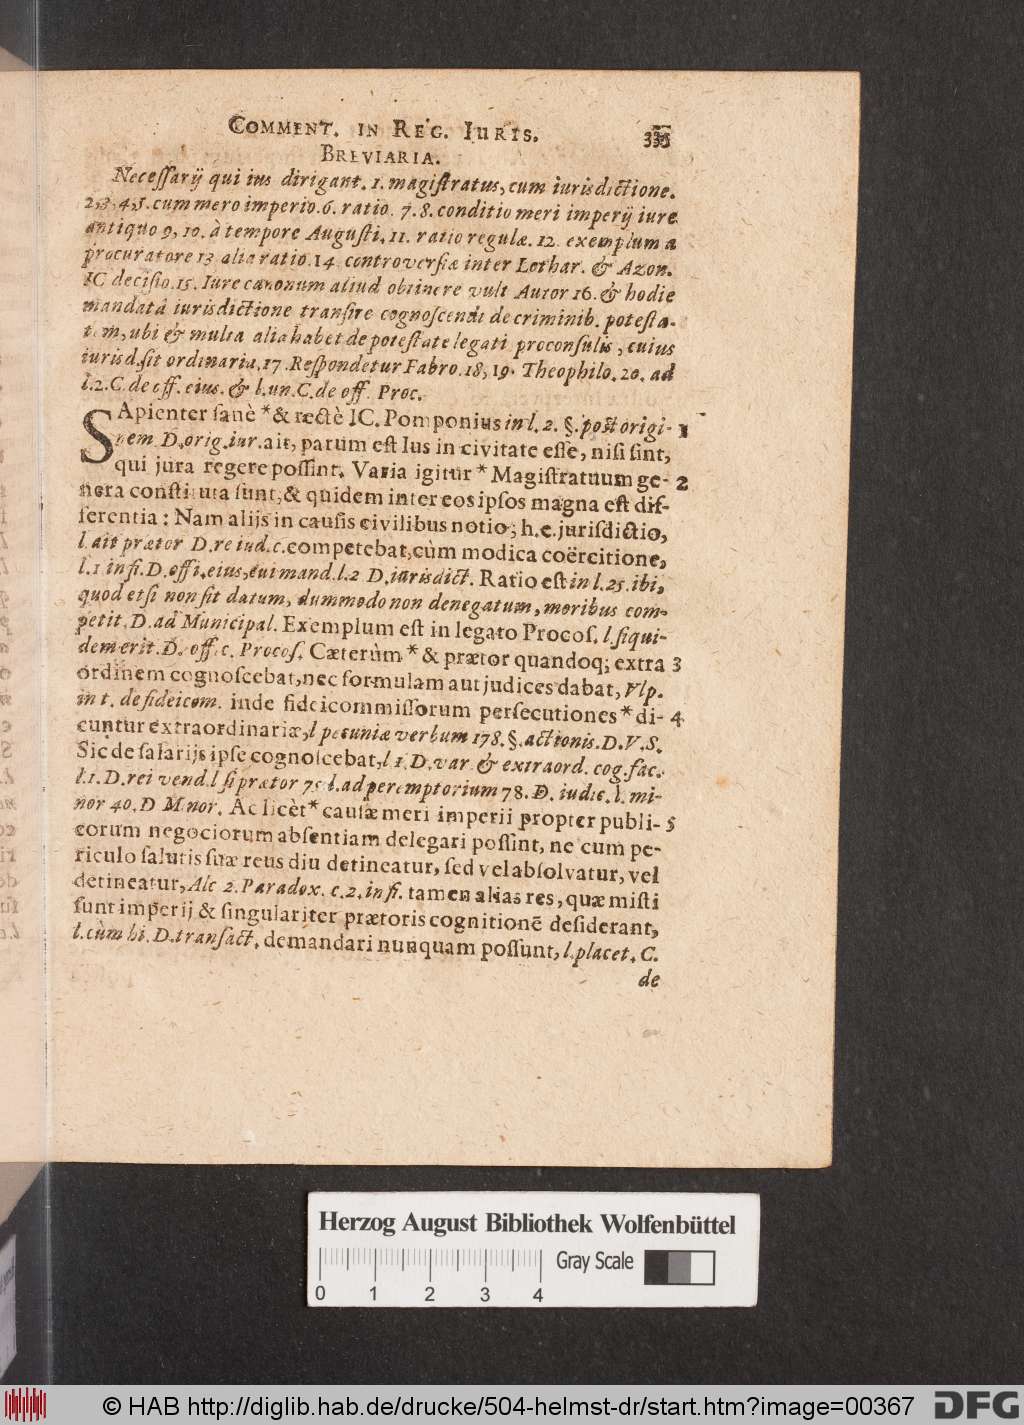 COMMENT. IN REG. IURIS. 335
BREVIARIA.
Necessarij qui ius dirigant. 1. magistratus, cum iurisdictione.
2, 3, 4, 5. cum mero imperio. 6. ratio. 7. 8. conditio meri imperij iure
antiquo 9, 10. à tempore Augusti, 11. ratio regulæ. 12. exemplum a
procuratore 13 alia ratio. 14. controversiæ inter Lothar. & Azon.
IC decisio. 15. Iure canonum aliud obtinere vult Autor 16. & hodie
mandatâ iurisdictione transire cognoscendi de criminib. potesta-
tem, ubi & multa alia habet de potestate legati proconsulis, cuius
iurisd. sit ordinaria, 17. Respondetur Fabro. 18, 19. Theophilo. 20. ad
l. 2. C. de off. eius. & l. un. C. de off. Proc.
SApienter sanè * & rectè IC. Pomponius in l. 2. §. post origi- 1
nem D. orig. iur. ait, parum est Ius in civitate esse, nisi sint,
qui jura regere possint. Varia igitur * Magistratuum ge- 2
nera constituta sunt, & quidem inter eos ipsos magna est dif-
ferentia: Nam alijs in causis civilibus notio, h. e. jurisdictio,
l. ait prætor D. re iud. c. competebat, cùm modica coërcitione,
l. 1 in fi. D. offi. eius, cui mand. l. 2 D. iurisdict. Ratio est in l. 25. ibi,
quod etsi non sit datum, dummodo non denegatum, moribus com-
petit. D. ad Municipal. Exemplum est in legato Procos. l. siqui-
dem erit. D. off. c. Procos. Cæterùm * & prætor quandoq; extra 3
ordinem cognoscebat, nec formulam aut judices dabat, Vlp.
in t. de fideicom. inde fideicommissorum persecutiones * di- 4
cuntur extraordinariæ, l pecuniæ verbum 178. §. actionis. D. V. S.
Sic de salarijs ipse cognoscebat, l 1. D. var. & extraord. cog. fac.
l. 1. D. rei vend. l si prætor 75 l. ad peremptorium 78. D. iudic. l. mi-
nor 40. D Minor. Ac licèt * causæ meri imperii propter publi- 5
corum negociorum absentiam delegari possint, ne cum pe-
riculo salutis suæ reus diu detineatur, sed vel absolvatur, vel
detineatur, Alc 2. Paradox. c. 2. in fi. tamen alias res, quæ misti
sunt imperij & singulariter prætoris cognitionē desiderant,
l. cùm hi. D. transact. demandari nunquam possunt, l. placet. C.
de
Herzog August Bibliothek Wolfenbüttel
Gray Scale
0 1 2 3 4
© HAB http://diglib.hab.de/drucke/504-helmst-dr/start.htm?image=00367
DFG